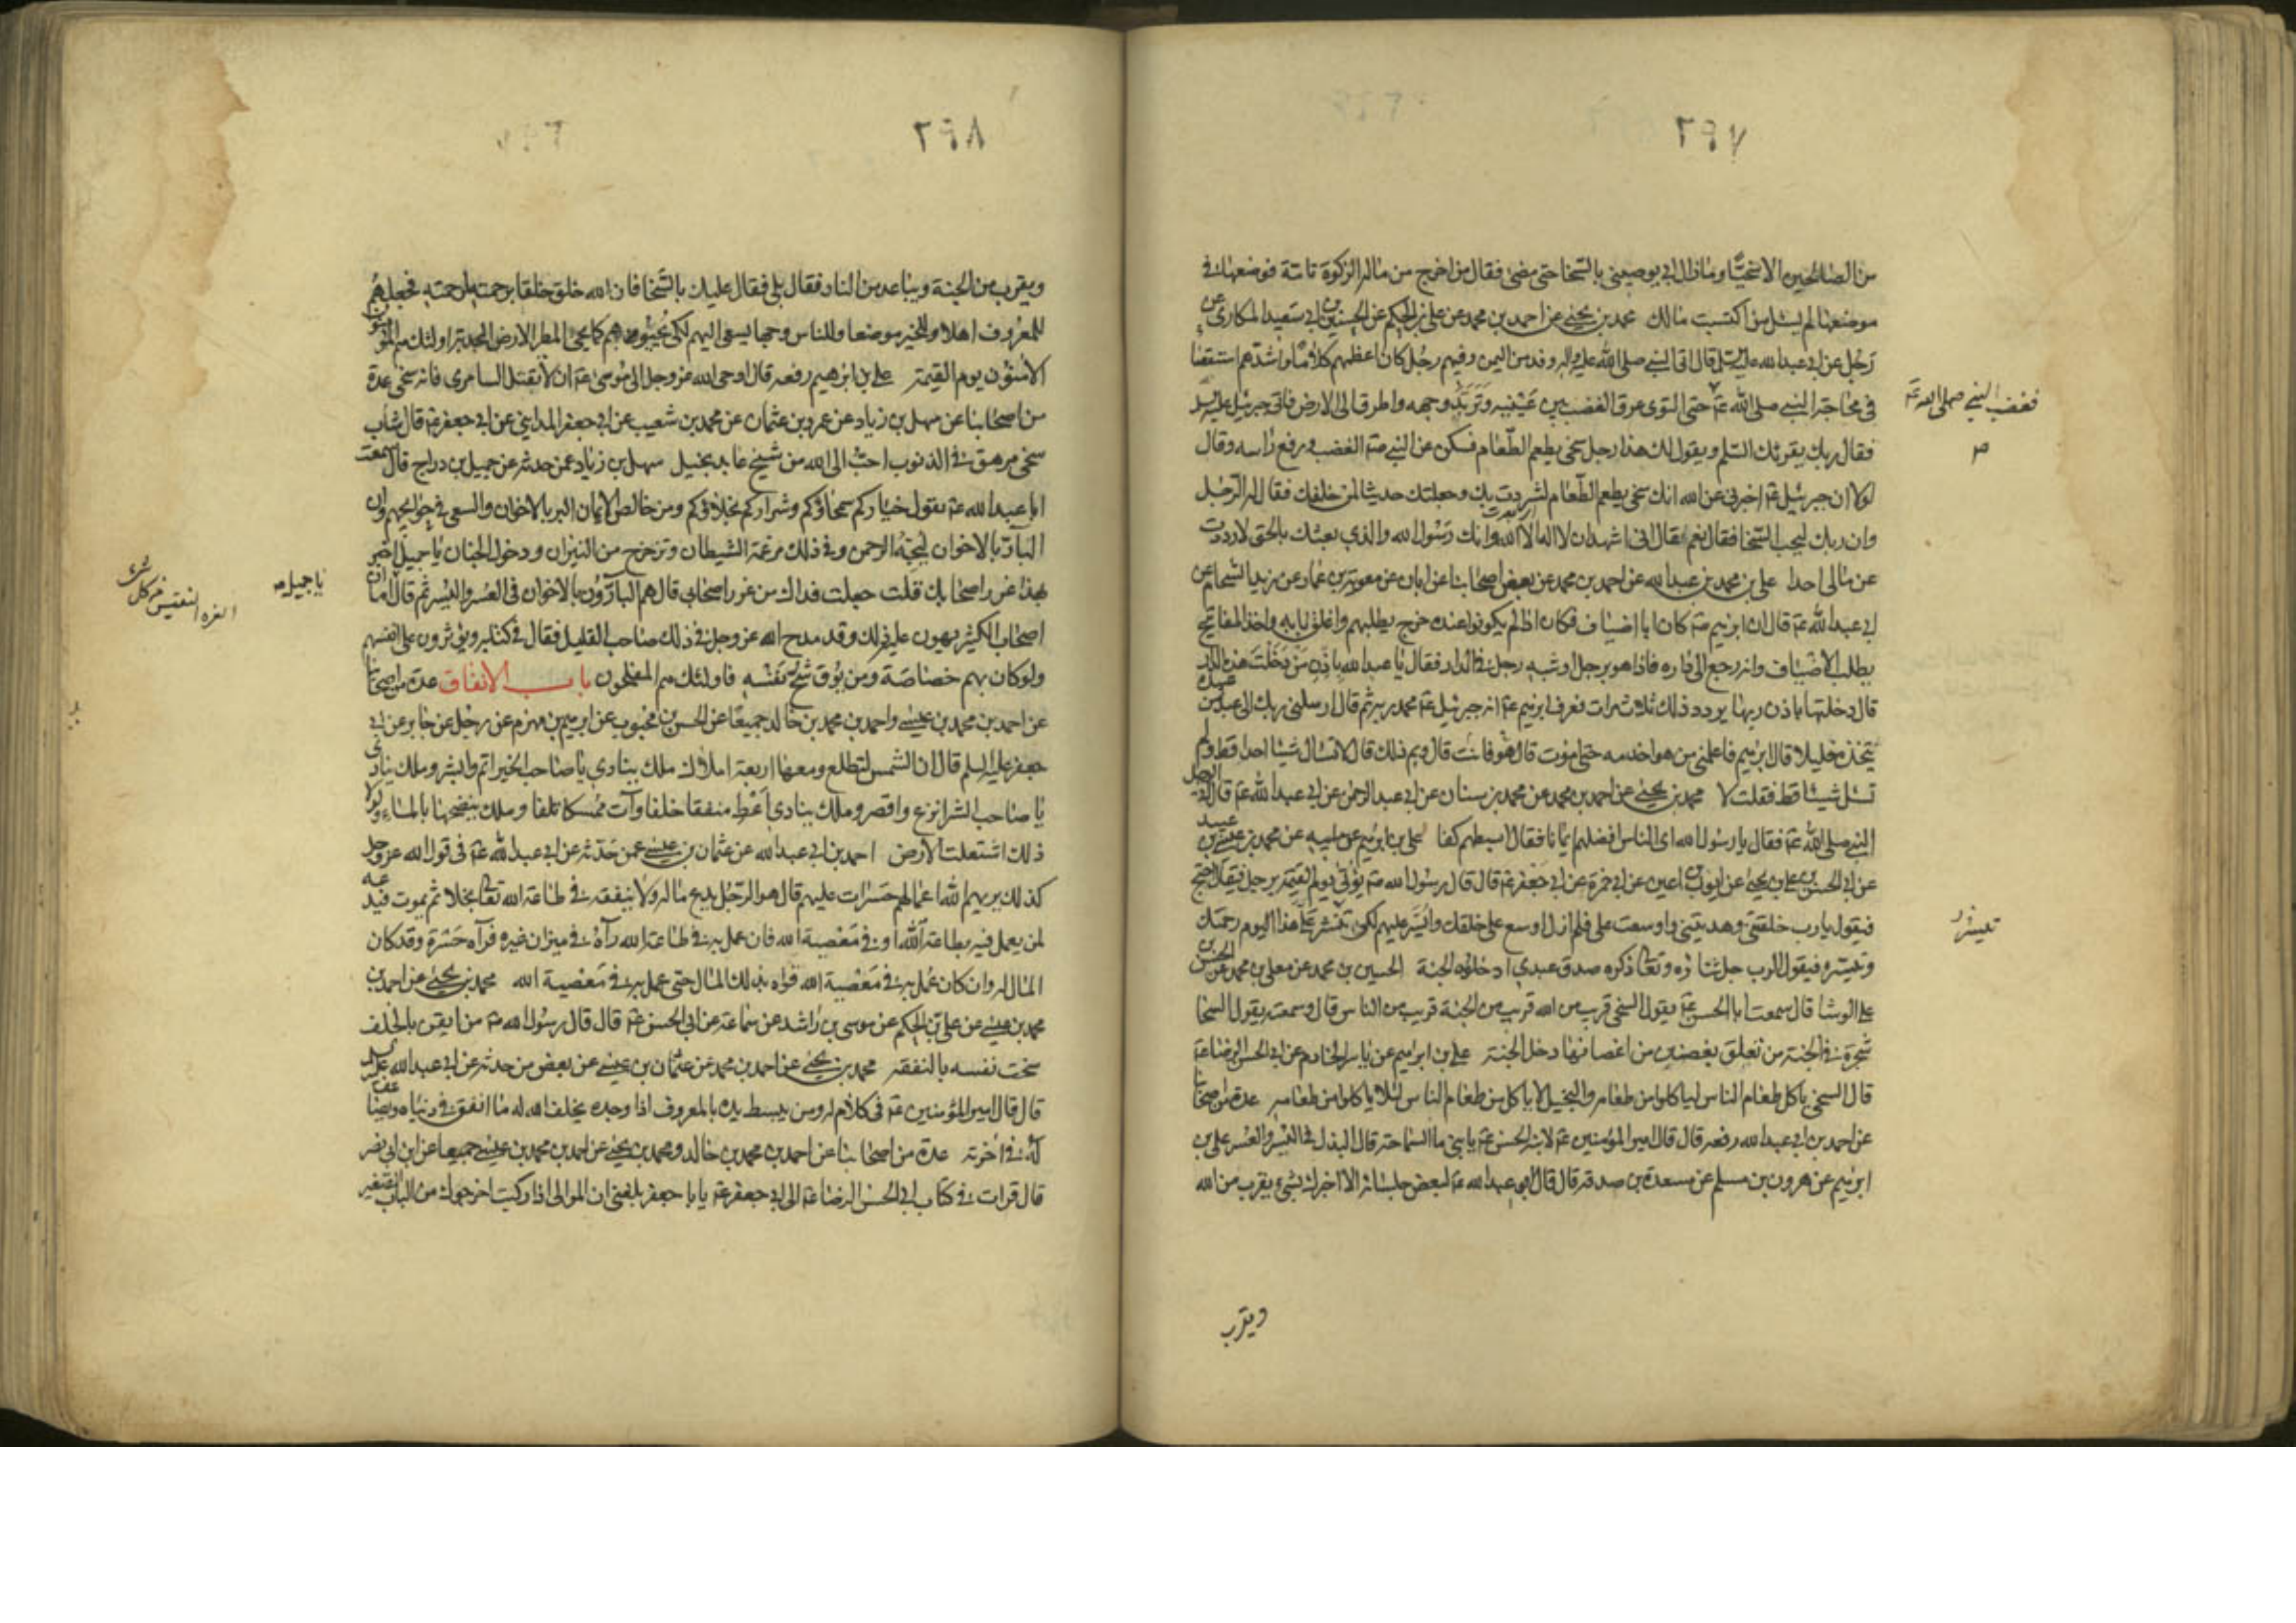 ٢٩٧
من الصالحين الا سخيا وما زال ابي يوصيني بالسخا حتى مضى فقال من اخرج من ماله الزكوة تامة فوضعها في
موضعها لم يسئل من اين اكتسبت مالك محمد بن يحيى عن احمد بن محمد عن علي بن الحكم عن الحسين بن ابي سعيد المكاري عن
رجل عن ابي عبد الله عليه السلم قال اتى النبي صلى الله عليه واله وفد من اليمن وفيهم رجل كان اعظمهم كلاما واشدهم استقصا
في محاجة النبي صلى الله عليه حتى التوى عرق الغضب بين عينيه وتربد وجهه واطرق الى الارض فاتى جبرئيل عليه السلم
فغضب النبي صلى الله عليه
فقال ربك يقرئك السلم ويقول لك هذا رجل سخي يطعم الطعام فسكن عن النبي الغضب ورفع راسه وقال
لولا ان جبرئيل اخبرني عن الله انك سخي يطعم الطعام لشردت بك وجعلتك حديثا لمن خلفك فقال له الرجل
وان ربك ليحب السخا فقال نعم فقال اني اشهد ان لا اله الا الله وانك رسول الله والذي بعثك بالحق لا رددت
عن مالي احدا علي بن محمد بن عبد الله عن احمد بن محمد عن بعض اصحابنا عن ابان عن معوية بن عمار عن زيد الشحام عن
ابي عبد الله قال ان ابرهيم كان ابا اضياف فكان اذا لم يكونوا عنده خرج يطلبهم واغلق بابه واخذ المفاتيح
يطلب الاضياف وانه رجع الى داره فاذا هو برجل او شبه رجل في الدار فقال يا عبد الله باذن من دخلت هذه الدار
قال دخلتها باذن ربها يردد ذلك ثلاث مرات فعرف ابرهيم انه جبرئيل فحمد ربه ثم قال ارسلني ربك الى عبد من عبيده
يتخذه خليلا قال ابرهيم فاعلمني من هو اخدمه حتى اموت قال هو فانت قال وبم ذلك قال لانك لم تسال شيئا احدا قط ولم
تسئل شيئا قط فقلت لا محمد بن يحيى عن احمد بن محمد عن محمد بن سنان عن ابي عبد الرحمن عن ابي عبد الله قال اتى رجل
النبي صلى الله عليه فقال يا رسول الله اي الناس افضلهم ايمانا فقال ابسطهم كفا علي بن ابرهيم عن ابيه عن محمد بن عيسى بن عبيد
عن ابي الحسن علي بن يحيى عن ايوب بن اعين عن ابي حمزة عن ابي جعفر قال قال رسول الله يؤتى يوم القيمة برجل فيقال احتج
فيقول يا رب خلقتني وهديتني واوسعت علي فلم ازل اوسع على خلقك وايسر عليهم لكي تنشر علي هذا اليوم رحمتك
وتيسره فيقول الرب جل ثناؤه وتعالى ذكره صدق عبدي ادخلوه الجنة الحسين بن محمد عن معلى بن محمد عن الحسن بن
علي الوشا قال سمعت ابا الحسن يقول السخي قريب من الله قريب من الجنة قريب من الناس قال وسمعته يقول السخا
شجرة في الجنة من تعلق بغصن من اغصانها دخل الجنة علي بن ابرهيم عن ياسر الخادم عن ابي الحسن الرضا
قال السخي ياكل طعام الناس لياكلوا من طعامه والبخيل لا ياكل من طعام الناس لئلا ياكلوا من طعامه عدة من اصحابنا
عن احمد بن ابي عبد الله رفعه قال قال امير المؤمنين لابنه الحسن يا بني ما السماحة قال البذل في اليسر والعسر علي بن
ابرهيم عن هرون بن مسلم عن مسعدة بن صدقة قال قال ابو عبد الله لبعض جلسائه الا اخبرك بشيء يقرب من الله
ويقرب
٢٩٨
ويقرب من الجنة ويباعد من النار فقال بلى فقال عليك بالسخا فان الله خلق خلقا برحمته لرحمته فجعلهم
للمعروف اهلا وللخير موضعا وللناس وجها يسعى اليهم لكي يحيوهم كما يحيي المطر الارض المجدبة اولئك هم المؤمنون
الامنون يوم القيمة علي بن ابرهيم رفعه قال اوحى الله عز وجل الى موسى ان لا تقتل السامري فانه سخي عدة
من اصحابنا عن سهل بن زياد عن عمرو بن عثمان عن محمد بن شعيب عن ابي جعفر المدايني عن ابي جعفر قال شاب
سخي مرهق في الذنوب احب الى الله من شيخ عابد بخيل سهل بن زياد عمن حدثه عن جميل بن دراج قال سمعت
ابا عبد الله يقول خياركم سمحاؤكم وشراركم بخلاؤكم ومن خالص الايمان البر بالاخوان والسعي في حوائجهم وان
البار بالاخوان ليحبه الرحمن وفي ذلك مرغمة الشيطان وتزحزح من النيران ودخول الجنان يا جميل اخبر
بهذا غرر اصحابك قلت جعلت فداك من غرر اصحابي قال هم البارون بالاخوان في العسر واليسر ثم قال اما ان
يا جميل
اصحاب الكثير يهون عليهم ذلك وقد مدح الله عز وجل في ذلك صاحب القليل فقال في كتابه ويؤثرون على انفسهم
ولو كان بهم خصاصة ومن يوق شح نفسه فاولئك هم المفلحون باب الانفاق عدة من اصحابنا
عن احمد بن محمد بن عيسى واحمد بن محمد بن خالد جميعا عن الحسن بن محبوب عن ابرهيم بن مهزم عن رجل عن جابر عن ابي
جعفر عليه السلم قال ان الشمس لتطلع ومعها اربعة املاك ملك ينادي يا صاحب الخير اتم وابشر وملك ينادي
يا صاحب الشر انزع واقصر وملك ينادي اعط منفقا خلفا وآت ممسكا تلفا وملك ينضحها بالماء ولولا
ذلك اشتعلت الارض احمد بن ابي عبد الله عن عثمان بن عيسى عمن حدثه عن ابي عبد الله في قول الله عز وجل
كذلك يريهم الله اعمالهم حسرات عليهم قال هو الرجل يدع ماله ولا ينفقه في طاعة الله بخلا ثم يموت فيدعه
لمن يعمل فيه بطاعة الله او في معصية الله فان عمل به في طاعة الله رآه في ميزان غيره فرآه حسرة وقد كان
المال له وان كان عمل به في معصية الله قواه بذلك المال حتى عمل به في معصية الله محمد بن يحيى عن احمد بن
محمد بن عيسى عن علي بن الحكم عن موسى بن راشد عن سماعة عن ابي الحسن قال قال رسول الله من ايقن بالخلف
سخت نفسه بالنفقة محمد بن يحيى عن احمد بن محمد عن عثمان بن عيسى عن بعض من حدثه عن ابي عبد الله عليه السلم
قال قال امير المؤمنين في كلام له ومن يبسط يده بالمعروف اذا وجده يخلف الله له ما انفق في دنياه ويضاعف
له في اخرته عدة من اصحابنا عن احمد بن محمد بن خالد ومحمد بن يحيى عن احمد بن محمد بن عيسى جميعا عن ابن ابي نصر
قال قرات في كتاب ابي الحسن الرضا الى ابي جعفر يا با جعفر بلغني ان الموالي اذا ركبت اخرجوك من الباب الصغير